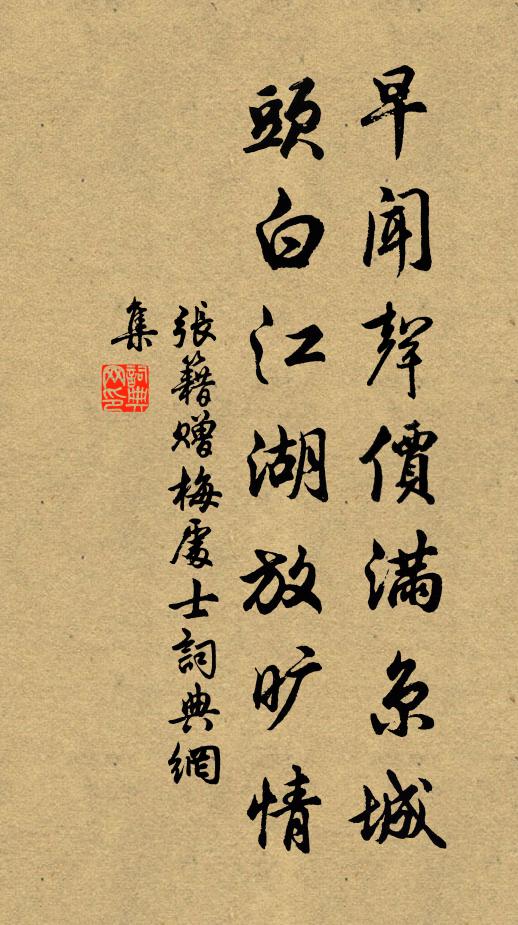 早聞聲價滿京城
頭白江湖放旷情
張籍贈梅處士詞典網
集
詞典
网印